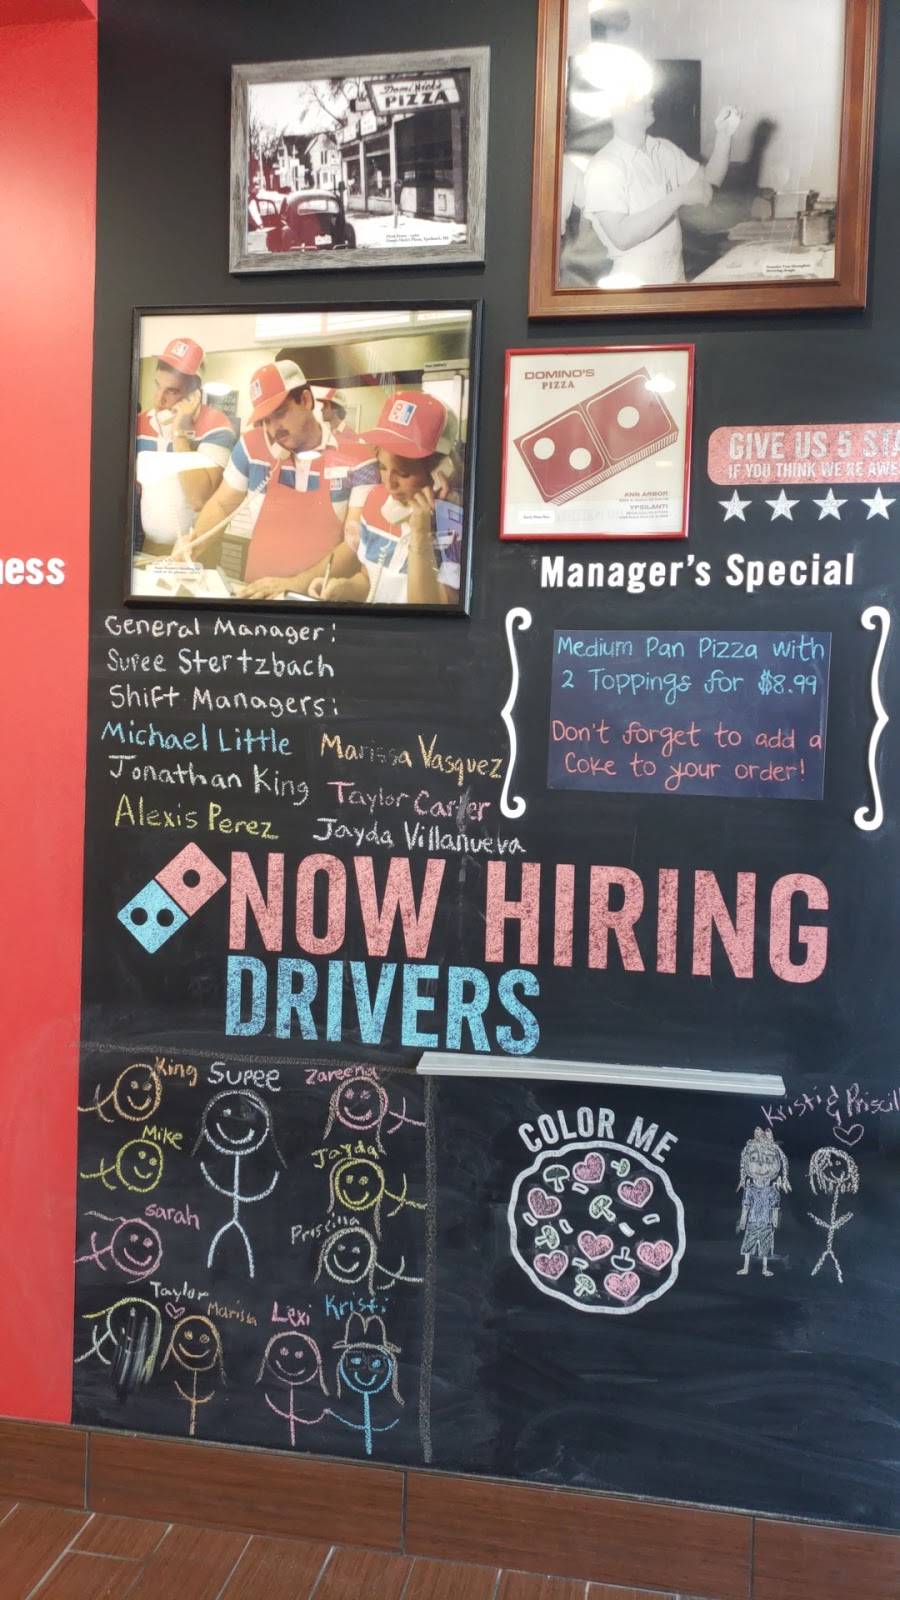 DomiNick's
PIZZA
DOMINO'S
PIZZA
ANN ARBOR
YPSILANTI
GIVE US 5 STA
IF YOU THINK WE'RE AWE
ness
Manager's Special
Medium Pan Pizza with
2 Toppings for $8.99
Don't forget to add a
Coke to your order!
General Manager:
Supee Stertzbach
Shift Managers:
Michael Little
Marissa Vasquez
Jonathan King
Taylor Carter
Alexis Perez
Jayda Villanueva
NOW HIRING
DRIVERS
King
Supee
Zareena
Mike
Jayda
Sarah
Priscilla
Taylor
Marissa
Lexi
Kristi
COLOR ME
Kristi & Priscill